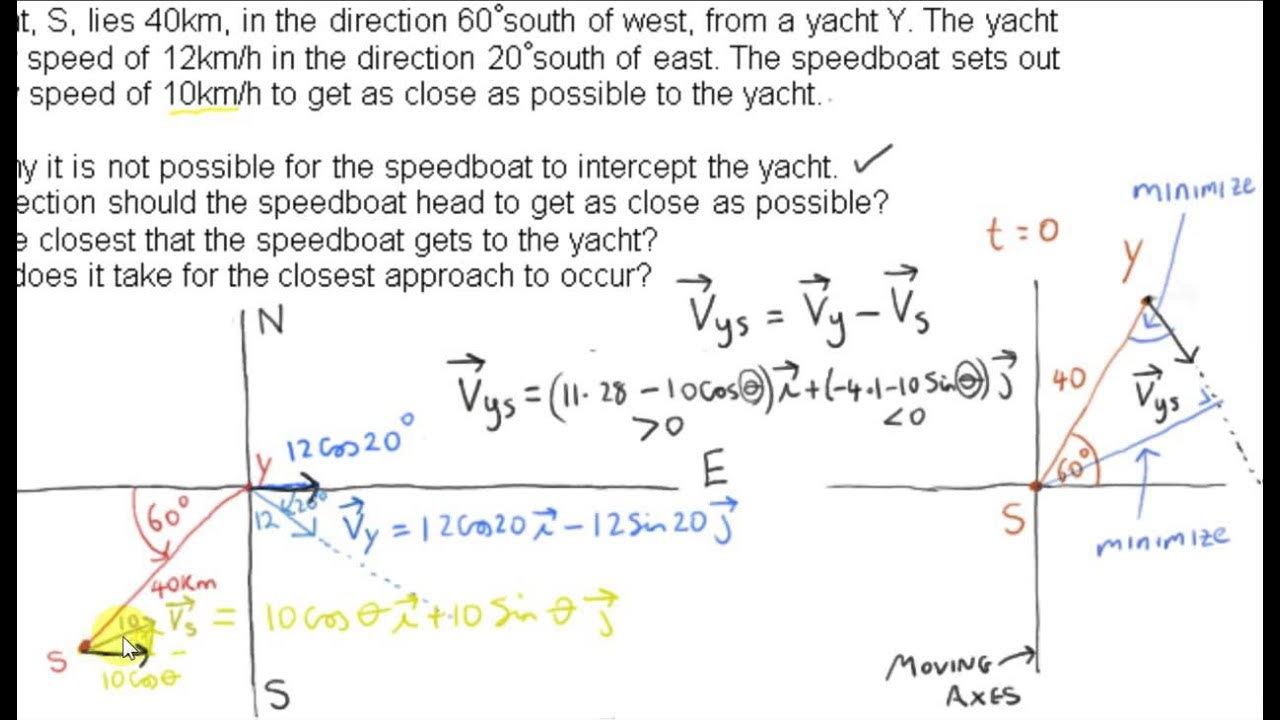 t, S, lies 40km, in the direction 60°south of west, from a yacht Y. The yacht
speed of 12km/h in the direction 20°south of east. The speedboat sets out
speed of 10km/h to get as close as possible to the yacht.
y it is not possible for the speedboat to intercept the yacht. ✓
ection should the speedboat head to get as close as possible?
e closest that the speedboat gets to the yacht?
does it take for the closest approach to occur?
minimize
t = 0
Y
N
V⃗ys = V⃗y - V⃗s
V⃗ys = (11.28 - 10Cosθ)i⃗ + (-4.1 - 10Sinθ)j⃗
>0 <0
40
V⃗ys
12Cos20°
Y
E
60°
20°
12
V⃗y = 12Cos20i⃗ - 12Sin20j⃗
60°
S
minimize
40Km
10
V⃗s = 10Cosθi⃗ + 10Sinθj⃗
S
10Cosθ
S
MOVING
AXES